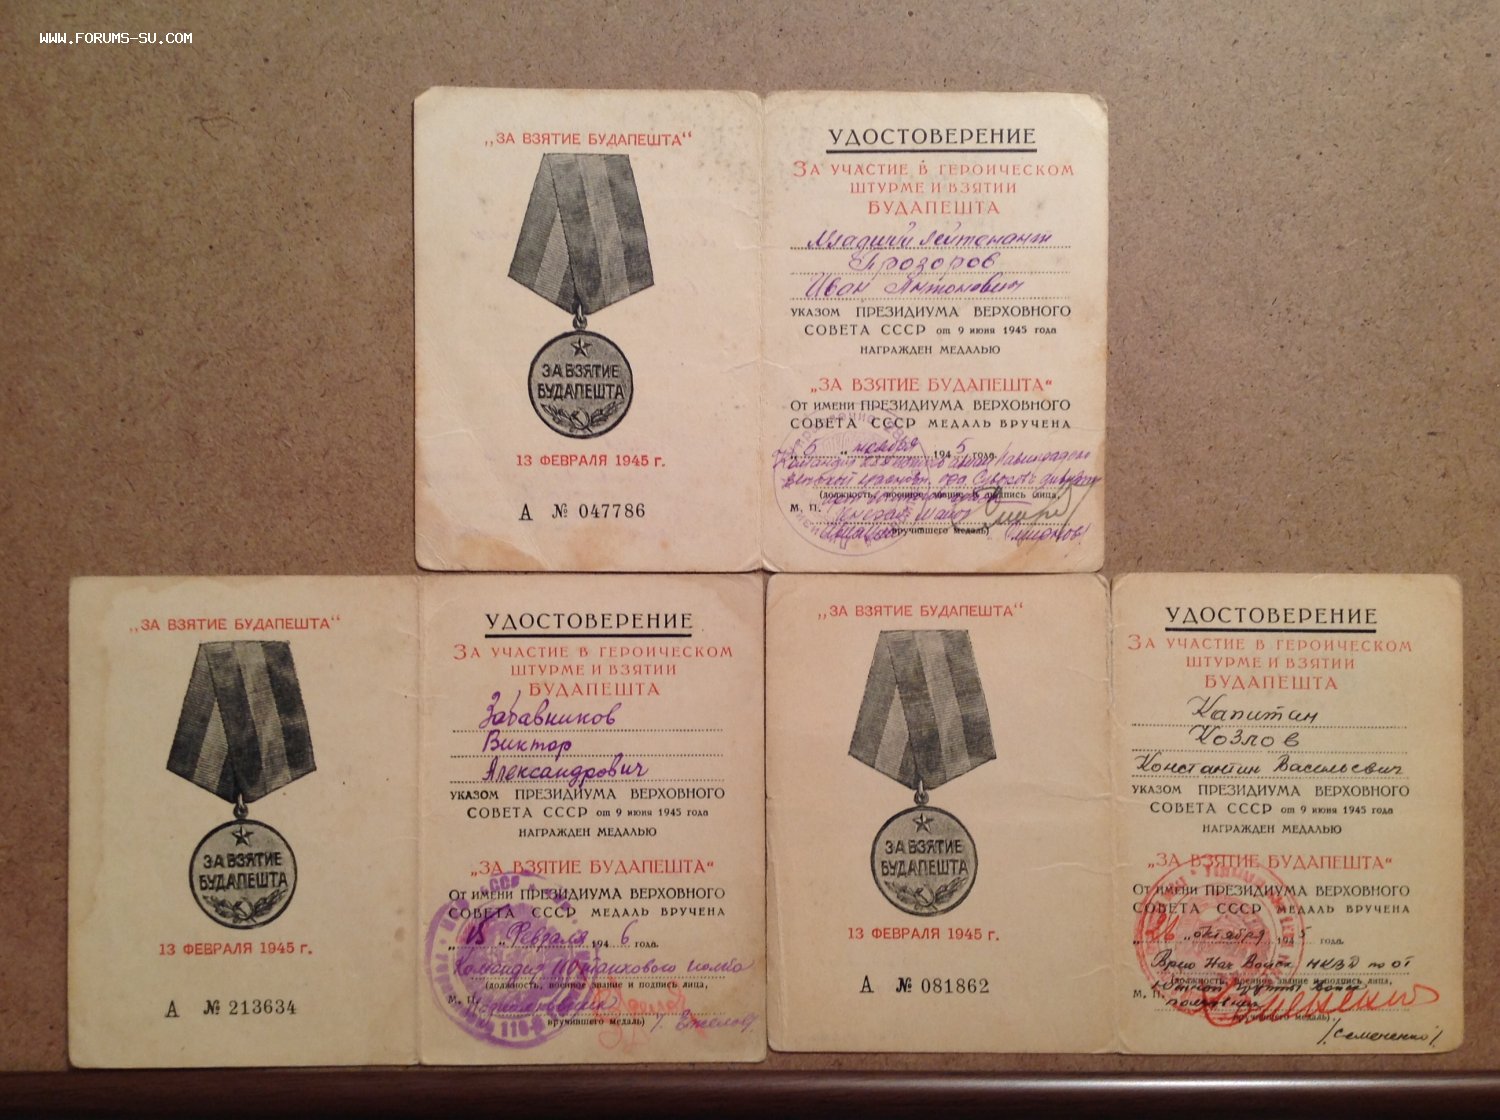 WWW.FORUMS-SU.COM
„ЗА ВЗЯТИЕ БУДАПЕШТА“
ЗА ВЗЯТИЕ
БУДАПЕШТА
13 ФЕВРАЛЯ 1945 г.
А № 047786
УДОСТОВЕРЕНИЕ
ЗА УЧАСТИЕ В ГЕРОИЧЕСКОМ
ШТУРМЕ И ВЗЯТИИ
БУДАПЕШТА
Младший лейтенант
Прозоров
Иван Антонович
УКАЗОМ ПРЕЗИДИУМА ВЕРХОВНОГО
СОВЕТА СССР от 9 июня 1945 года
НАГРАЖДЕН МЕДАЛЬЮ
„ЗА ВЗЯТИЕ БУДАПЕШТА“
От имени ПРЕЗИДИУМА ВЕРХОВНОГО
СОВЕТА СССР МЕДАЛЬ ВРУЧЕНА
„5“ ноября 1945 года.
Командир
(должность, военное звание и подпись лица,
М. П. Генерал майор
авиации вручившего медаль) /Смирнов/
„ЗА ВЗЯТИЕ БУДАПЕШТА“
ЗА ВЗЯТИЕ
БУДАПЕШТА
13 ФЕВРАЛЯ 1945 г.
А № 213634
УДОСТОВЕРЕНИЕ
ЗА УЧАСТИЕ В ГЕРОИЧЕСКОМ
ШТУРМЕ И ВЗЯТИИ
БУДАПЕШТА
Забавников
Виктор
Александрович
УКАЗОМ ПРЕЗИДИУМА ВЕРХОВНОГО
СОВЕТА СССР от 9 июня 1945 года
НАГРАЖДЕН МЕДАЛЬЮ
„ЗА ВЗЯТИЕ БУДАПЕШТА“
От имени ПРЕЗИДИУМА ВЕРХОВНОГО
СОВЕТА СССР МЕДАЛЬ ВРУЧЕНА
„15“ Февраля 1946 года.
Командир танкового полка
(должность, военное звание и подпись лица,
М. П.
вручившего медаль)
„ЗА ВЗЯТИЕ БУДАПЕШТА“
ЗА ВЗЯТИЕ
БУДАПЕШТА
13 ФЕВРАЛЯ 1945 г.
А № 081862
УДОСТОВЕРЕНИЕ
ЗА УЧАСТИЕ В ГЕРОИЧЕСКОМ
ШТУРМЕ И ВЗЯТИИ
БУДАПЕШТА
Капитан
Козлов
Константин Васильевич
УКАЗОМ ПРЕЗИДИУМА ВЕРХОВНОГО
СОВЕТА СССР от 9 июня 1945 года
НАГРАЖДЕН МЕДАЛЬЮ
„ЗА ВЗЯТИЕ БУДАПЕШТА“
От имени ПРЕЗИДИУМА ВЕРХОВНОГО
СОВЕТА СССР МЕДАЛЬ ВРУЧЕНА
октября 1945 года.
Врио Нач Войск НКВД по ОТ
(должность, военное звание и подпись лица,
Южной группы войск
М. П. полковник
вручившего медаль)
/Семененко/